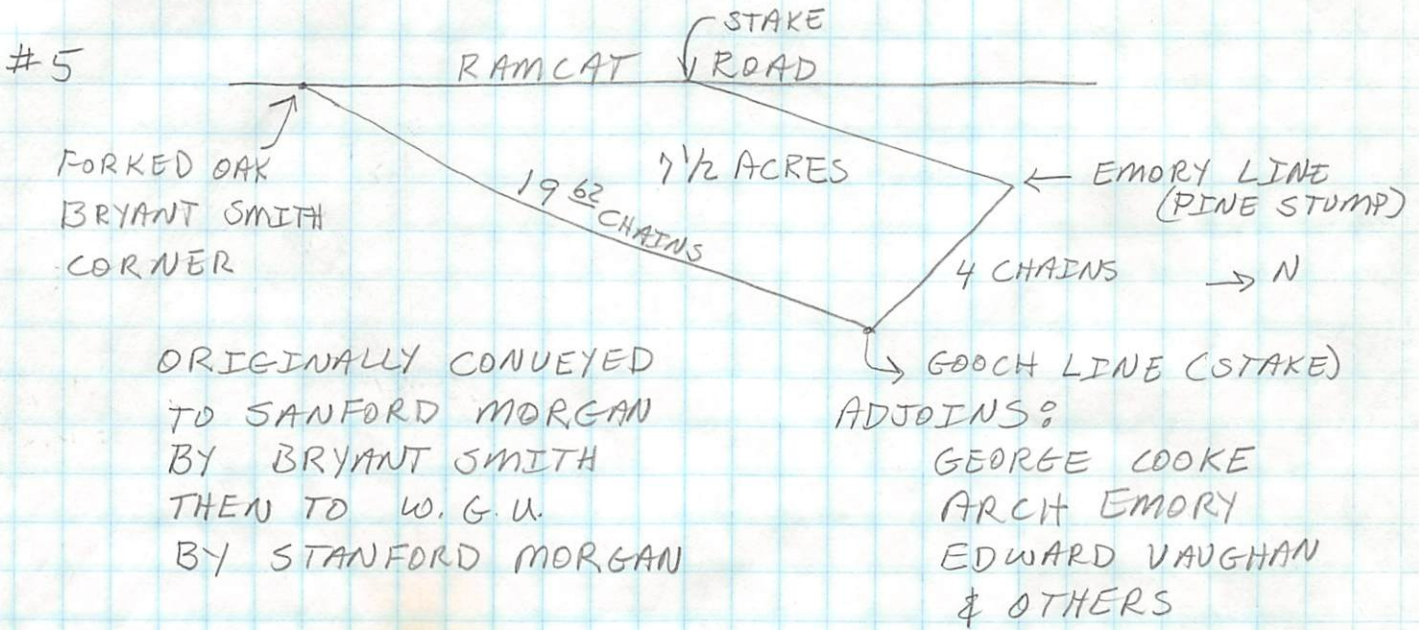 #5
STAKE
RAMCAT ROAD
FORKED OAK
BRYANT SMITH
CORNER
19 62 CHAINS
7 1/2 ACRES
EMORY LINE
(PINE STUMP)
4 CHAINS
N
GOOCH LINE (STAKE)
ORIGINALLY CONVEYED
TO SANFORD MORGAN
BY BRYANT SMITH
THEN TO W. G. U.
BY STANFORD MORGAN
ADJOINS:
GEORGE COOKE
ARCH EMORY
EDWARD VAUGHAN
& OTHERS